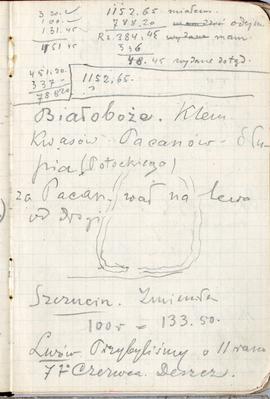 320.
100.—
131.45
451.45
1152.65 miałem
788.20
R. 384.45 wydane mam
336
48.45 wydane dotąd.
451.20.
337 –
788.20
1152.65.
Białoboże. Klem
Kwasów Pacanów –
pia (Potockiego)
za Pacan. wał na lewo
od drogi
Szczucin. Zmieniła
100 = 133.50.
Lwów. Przybyliśmy o 11 rano
7go Czerwca. Deszcz.